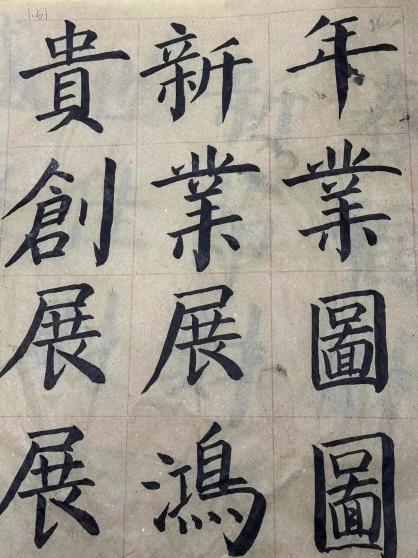 年業圖圖
新業展鴻
貴創展展